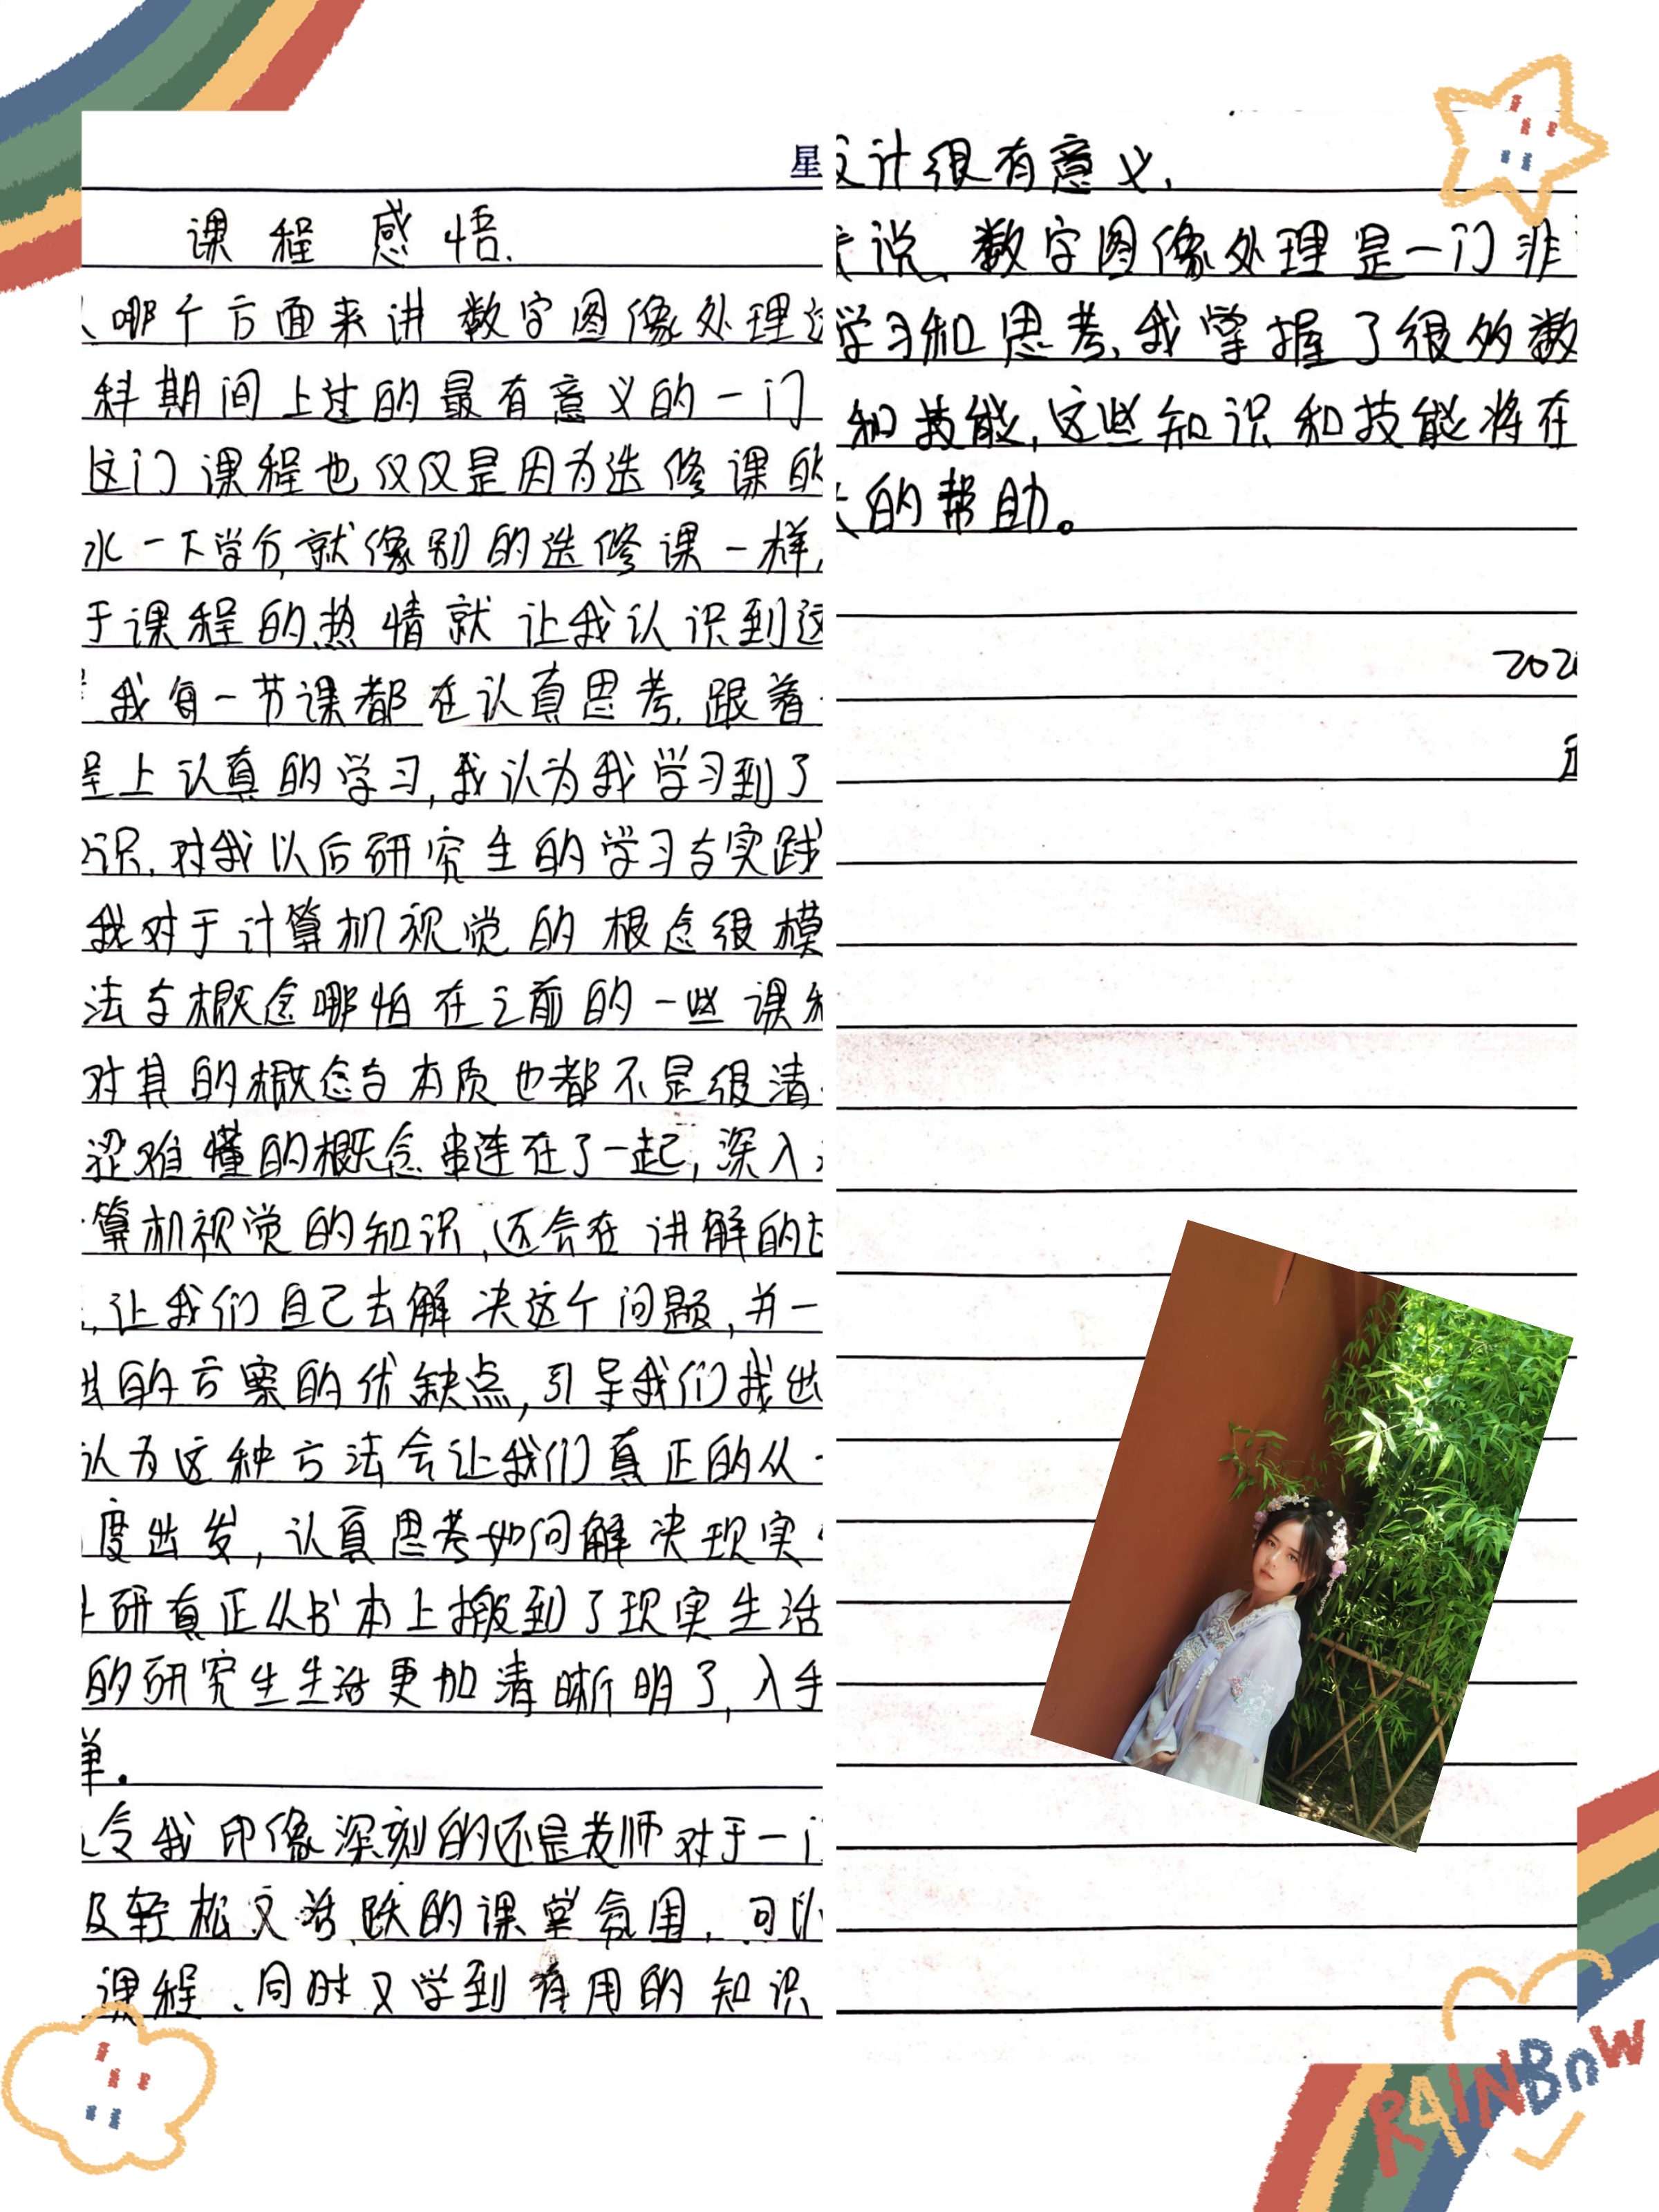 星
课程感悟.
哪个方面来讲数字图像处理这
科期间上过的最有意义的一门
这门课程也仅仅是因为选修课的
水一下学分,就像别的选修课一样,
于课程的热情就让我认识到这
我每一节课都在认真思考,跟着
上认真的学习,我认为我学习到了
识,对我以后研究生的学习与实践
我对于计算机视觉的概念很模
法与概念哪怕在之前的一些课程
对其的概念与本质也都不是很清
涩难懂的概念串连在了一起,深入
算机视觉的知识,还会在讲解的
,让我们自己去解决这个问题,并一
的方案的优缺点,引导我们找出
认为这种方法会让我们真正的从
度出发,认真思考如何解决现实
研真正从书本上搬到了现实生活
的研究生生活更加清晰明了,入手
单.
令我印像深刻的还是老师对于一门
及轻松又活跃的课堂氛围,可以
课程、同时又学到有用的知识
计很有意义.
说,数字图像处理是一门非
学习和思考,我掌握了很多数
和技能,这些知识和技能将在
的帮助。
202
RAINBOW